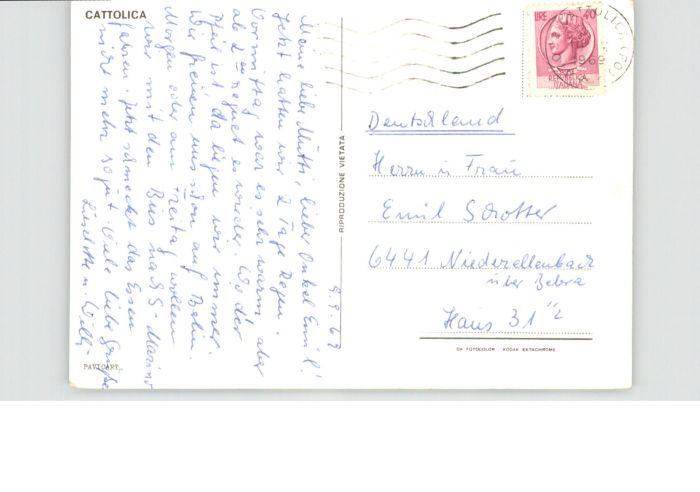 CATTOLICA
9.9.69
Meine liebe Mutti, lieber Onkel Emil!
Jetzt hatten wir 2 Tage Regen.
Vormittag war es sehr warm, aber
ab 2 regnet es wieder. Wo der
Pfeil ist da liegen wir immer.
Wir freuen uns schon auf Berlin.
Morgen oder am Freitag wollen
wir mit dem Bus nach S-Marino
fahren. Jetzt schmeckt das Essen
nicht mehr so gut. Viele liebe Grüße
Liselotte u. Willi
PAVICART
RIPRODUZIONE VIETATA
LIRE 40
CATTOLICA (FO)
Deutschland
Herrn u Frau
Emil Schotter
6441 Niederellenbach
über Bebra
Haus 31 1/2
DA FOTOCOLOR KODAK EKTACHROME